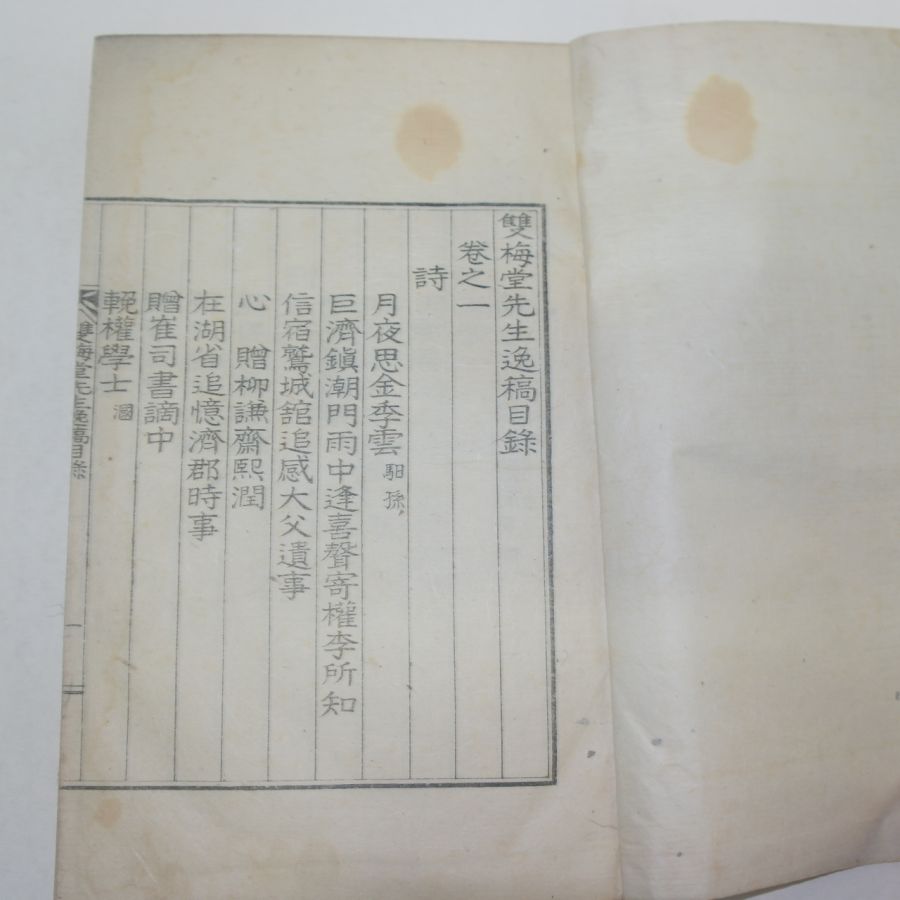 雙梅堂先生逸稿目錄
卷之一
詩
月夜思金季雲 馹孫
巨濟鎭潮門雨中逢喜聲寄權李所知
信宿鷲城舘追感大父遺事
心 贈柳謙齋熙潤
在湖省追憶濟郡時事
贈崔司書謫中
輓權學士
雙梅堂先生逸稿目錄
一